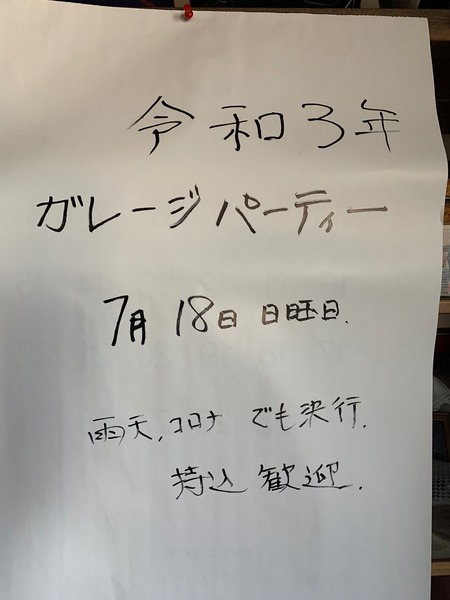 令和3年
ガレージパーティー
7月18日 日曜日.
雨天.コロナ でも決行.
持込歓迎.